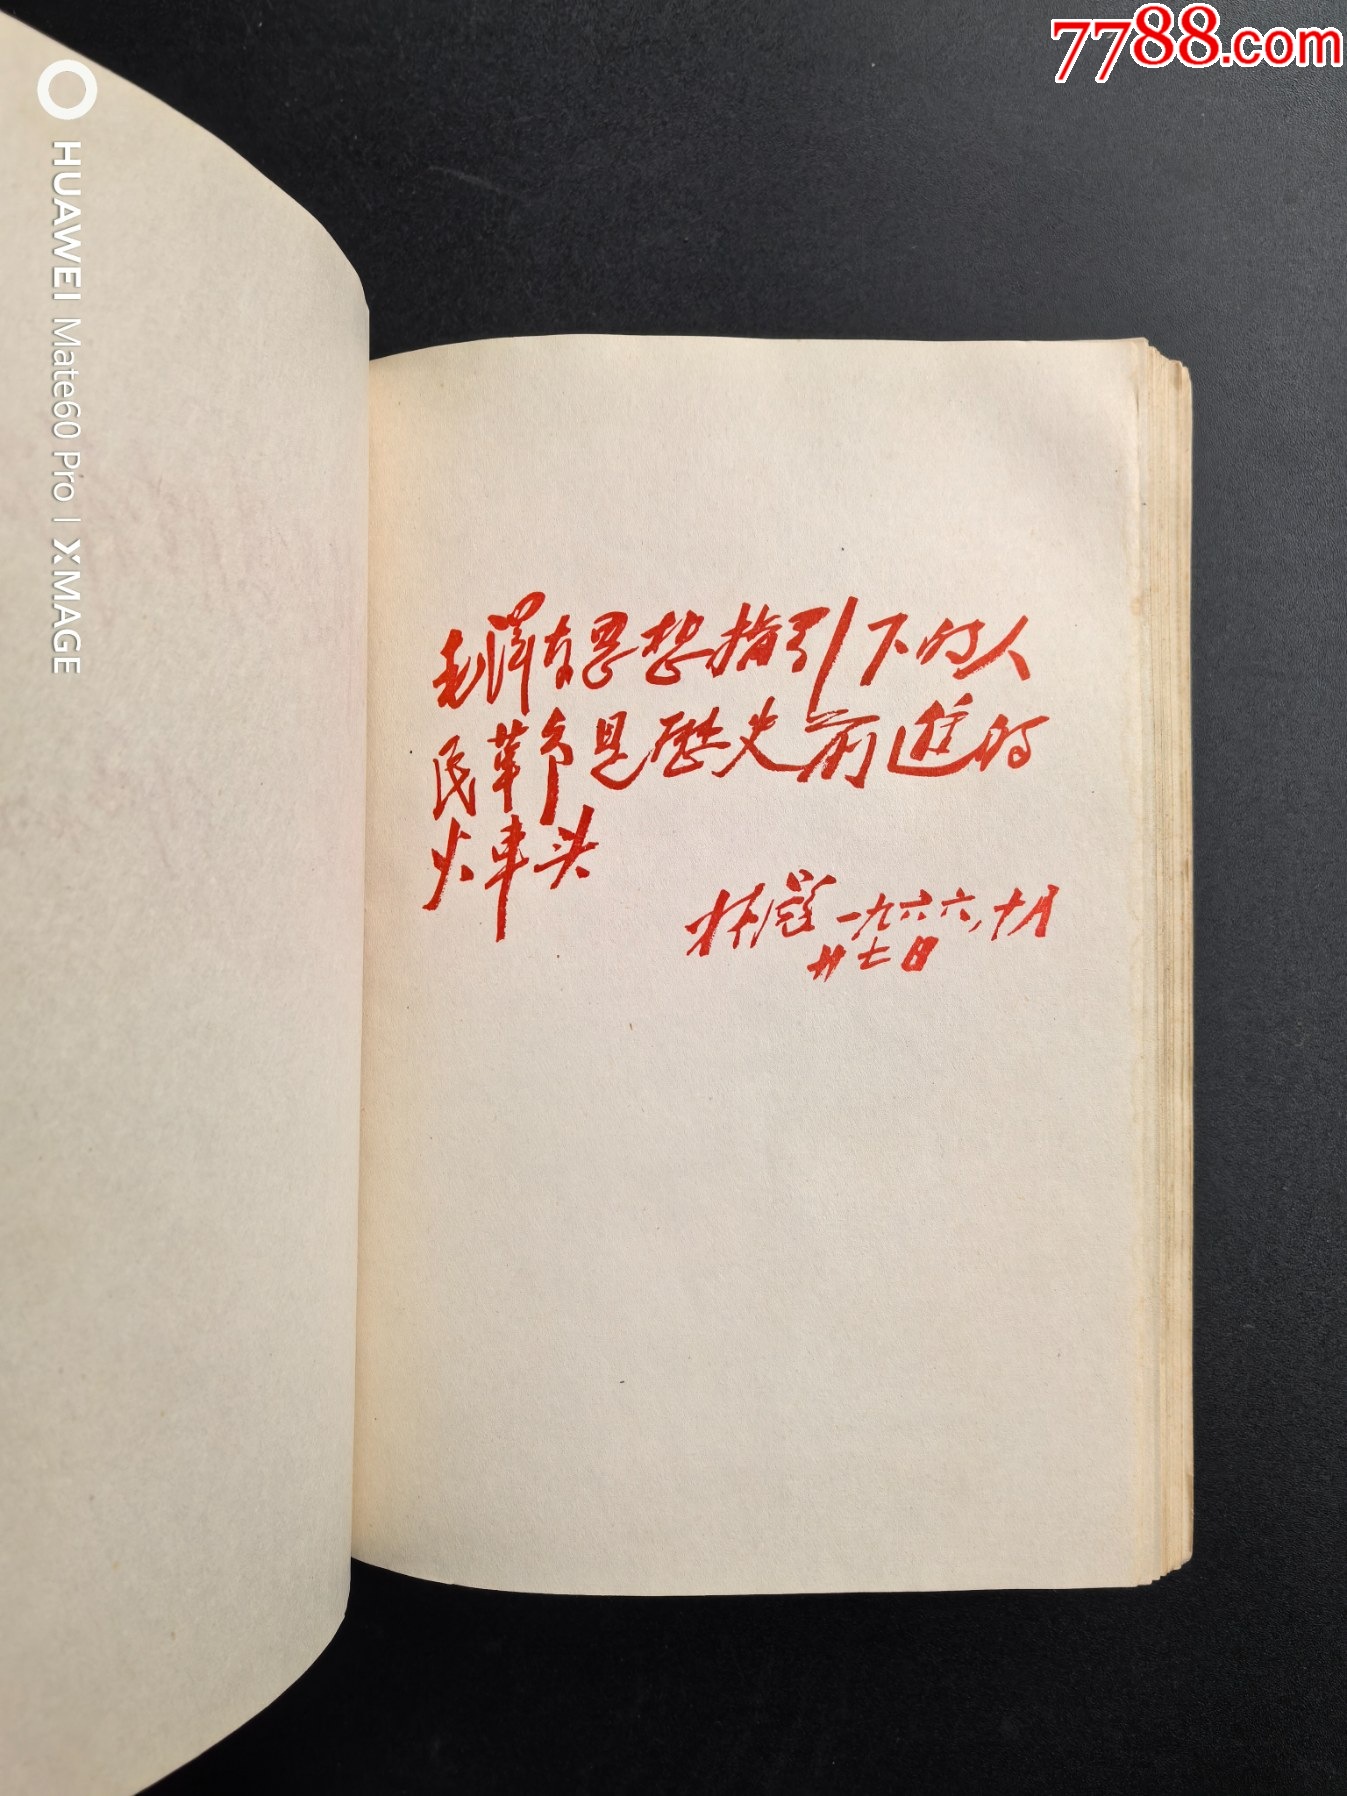 7788.com
HUAWEI Mate60 Pro | XMAGE
毛泽东思想指引下的人
民革命是历史前进的
火车头
林彪 一九六六,十月
廿七日